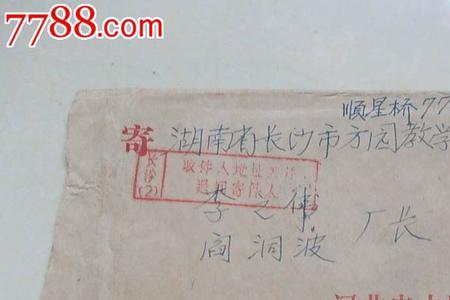 7788.com
顺星桥77
寄 湖南省长沙市方园教学
长沙(2) 收件人地址
退回寄件人
李 之 伟
阎 洞 波 厂长